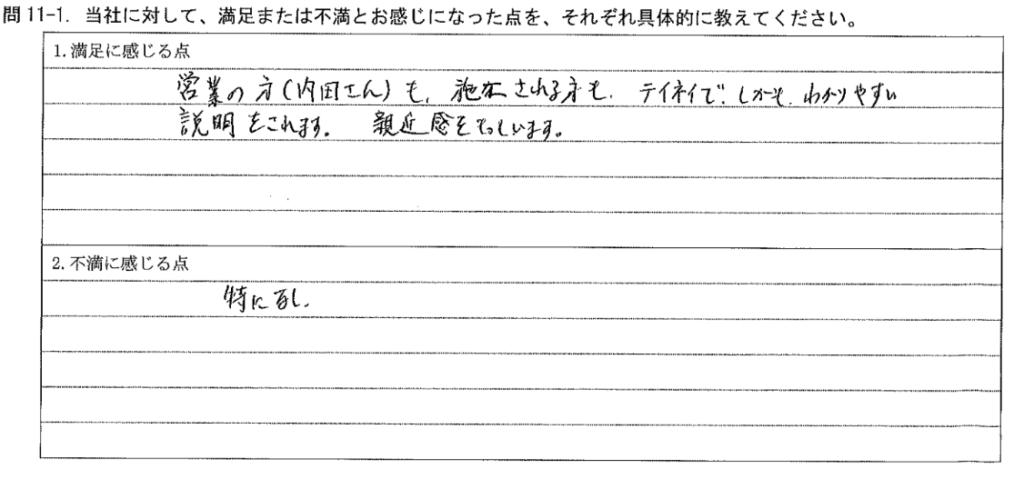 問11-1. 当社に対して、満足または不満とお感じになった点を、それぞれ具体的に教えてください。
1.満足に感じる点
営業の方(内田さん)も、施工される方も、テイネイで、しかも、わかりやすい
説明をされます。 親近感をもっています。
2.不満に感じる点
特になし.